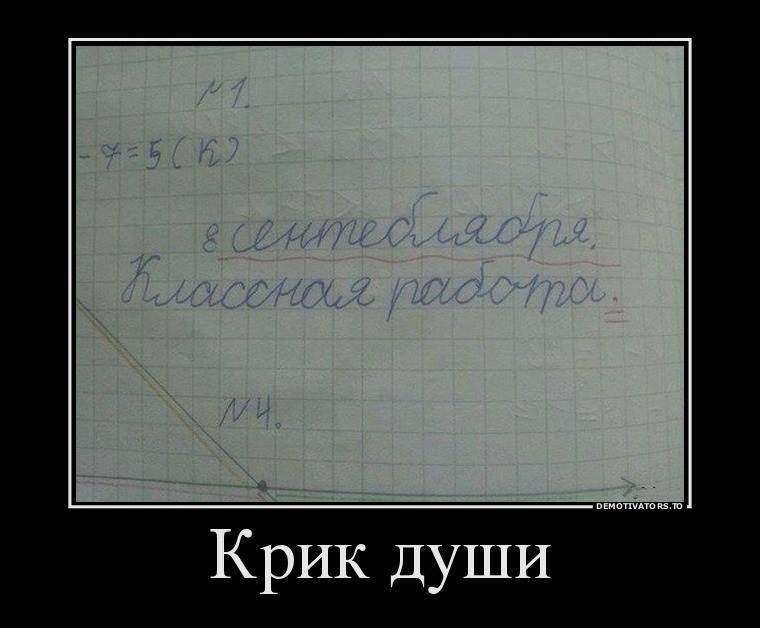 №1.
- 7 = 5 (К)
8 сентеблября.
Классная работа.
№4.
DEMOTIVATORS.TO
Крик души